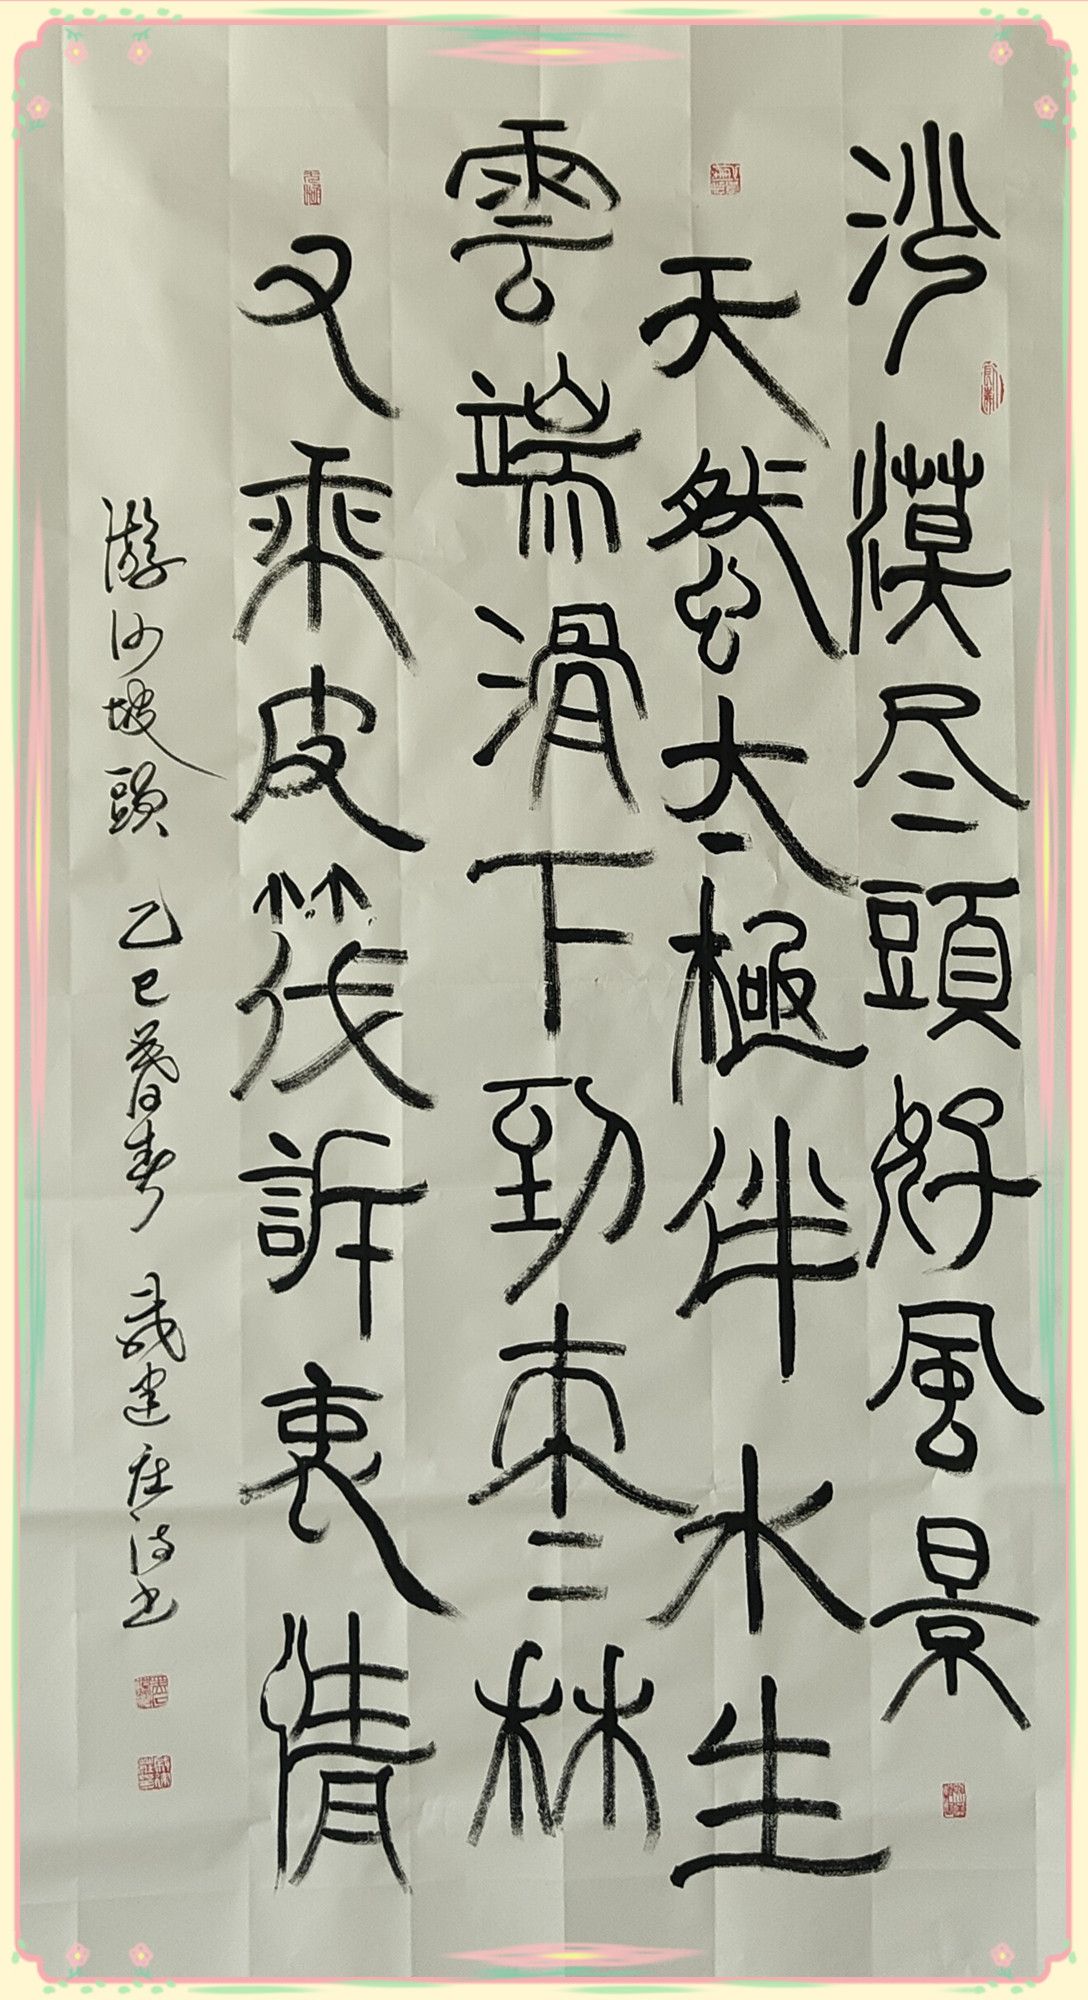 沙漠尽頭好風景
天然太極伴水生
雲端滑下到枣林
又乘皮筏訴衷情
游沙坡頭 乙巳暮春 成建庄詩书